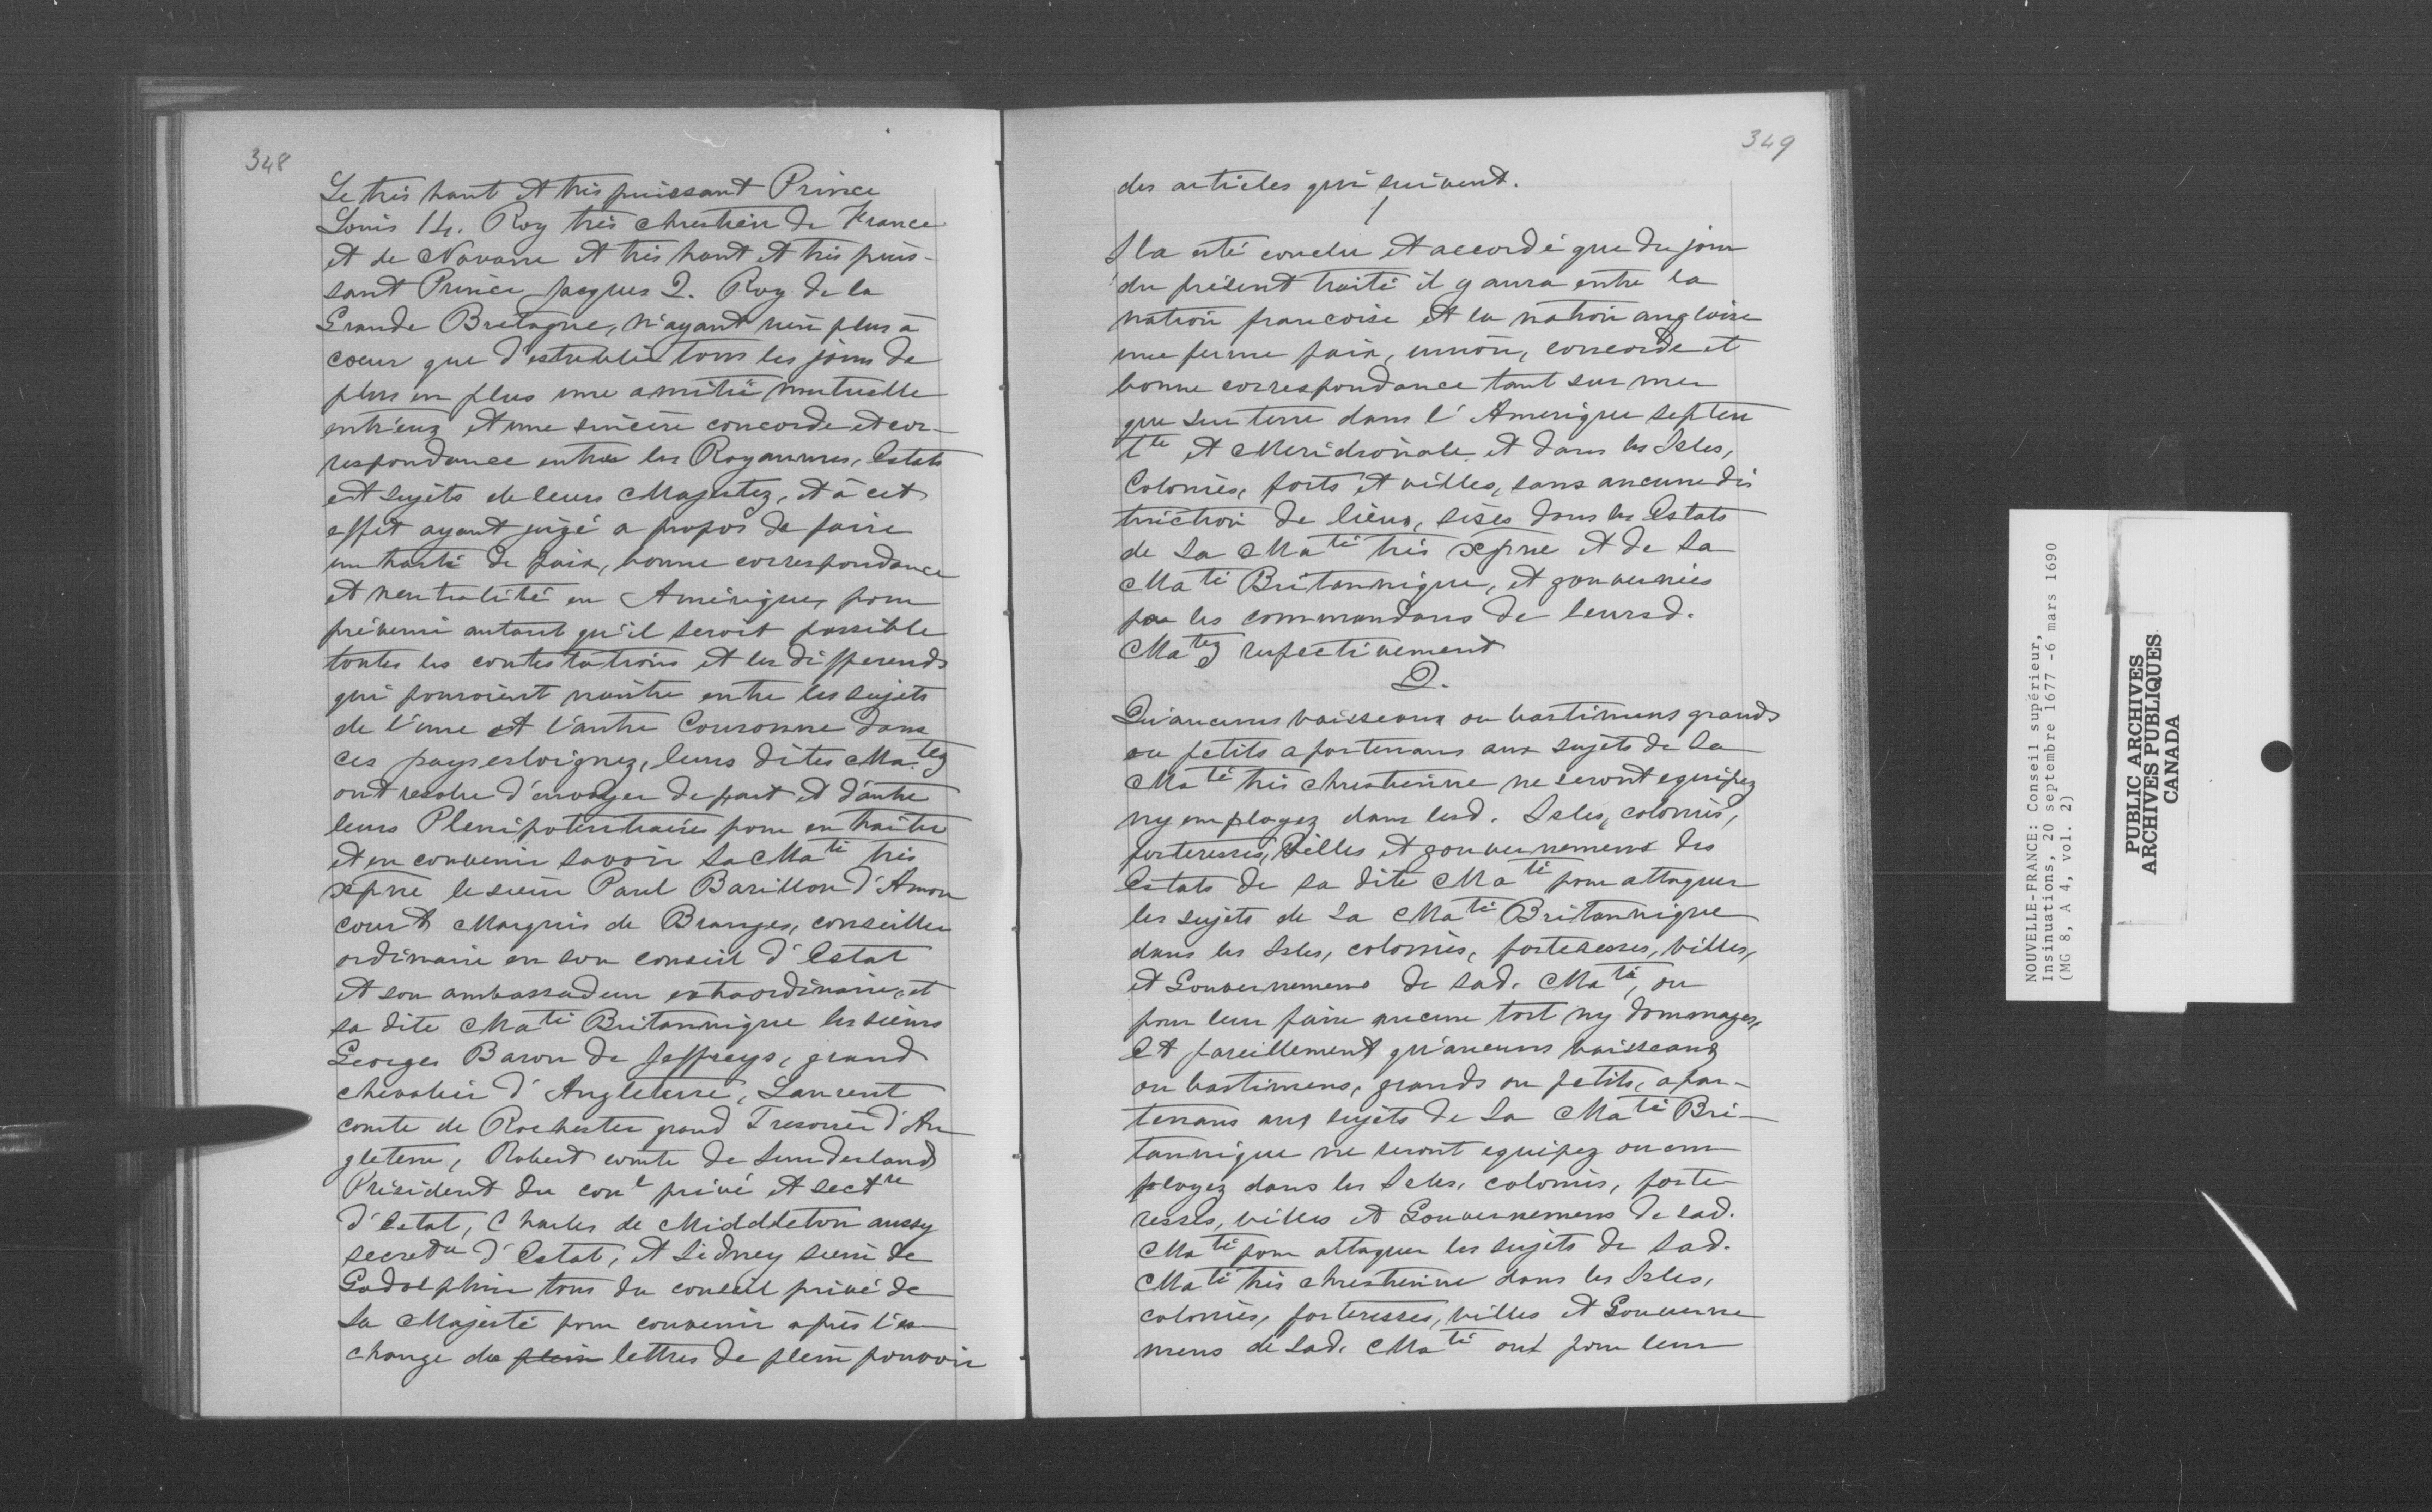 348
Le très haut et très puissant Prince
Louis 14. Roy très chrestien de France
et de Navarre et très haut et très puis-
sant Prince Jacques 2. Roy de la
Grande Bretagne, n'ayant rien plus à
coeur que d'establir tous les jours de
plus en plus une amitié mutuelle
entr'eux et une sincère concorde et cor-
respondance entre les Royaumes, Estats
et sujets de leurs Majestez, et à cet
effet ayant jugé a propos de faire
un traité de paix, bonne correspondance
et neutralité en Amérique, pour
prévenir autant qu'il seroit possible
toutes les contestations et les differends
qui pouroient naistre entre les sujets
de l'une et l'autre Couronne dans
ces pays esloignez, leurs dites Ma.tez
ont resolu d'envoyer de part et d'autre
leurs Plenipotentiaires pour en traiter
et en convenir savoir Sa Ma té très
xpne le sieur Paul Barillon d'Amon
court Marquis de Branges, conseiller
ordinaire en son conseil d'Estat
et son ambassadeur extraordinaire, et
sa dite Ma té Britannique les sieurs
Georges Baron de Jeffreys, grand
chevalier d'Angleterre, Laurent
comte de Rochester grand Tresorier d'An
gleterre, Robert comte de Sunderland
Président du con l privé et sect re
d'Estat, Charles de Middleton aussy
secret re d'Estat, et Sidney sieur de
Godolphin tous du conseil privé de
Sa Majesté pour convenir après l'es
change des plein lettres de plein pouvoir
349
des articles qui suivent.
1
Il a esté conclu et accordé que du jour
du présent traité il y aura entre la
nation francoise et la nation angloise
une ferme paix, union, concorde et
bonne correspondance tant sur mer
que sur terre dans l'Amerique septen
t le et Meridionale et dans les Isles,
Colonies, forts et villes, sans aucune dis
tinction de lieux, sises dans les Estats
de Sa Ma té très xpne et de Sa
Ma té Britannique, et gouvernées
par les commandans de leursd.
Ma tez respectivement
2.
Qu'aucuns vaisseaux ou bastimens grands
ou petits apartenans aux sujets de Sa
Ma té très chrestienne ne seront equipez
ny employez dans lesd. Isles, colonies,
forteresses, Villes et gouvernemens des
Estats de sa dite Ma té pour attaquer
les sujets de Sa Ma té Britannique
dans les Isles, colonies, forteresses, villes,
et Gouvernemens de sad. Ma té, ou
pour leur faire aucun tort ny dommages,
Et pareillement qu'aucuns vaisseaux
ou bastimens, grands ou petits, apar-
tenans aux sujets de Sa Ma té Bri-
tannique ne seront equipez ou em
ployez dans les Isles, colonies, forte
resses, villes et Gouvernemens de sad.
Ma té pour attaquer les sujets de Sad.
Ma té très chrestienne dans les Isles,
colonies, forteresses, villes et Gouverne
mens de Sad. Ma té ou pour leur
NOUVELLE-FRANCE: Conseil supérieur,
Insinuations, 20 septembre 1677 -6 mars 1690
(MG 8, A 4, vol. 2)
PUBLIC ARCHIVES
ARCHIVES PUBLIQUES
CANADA